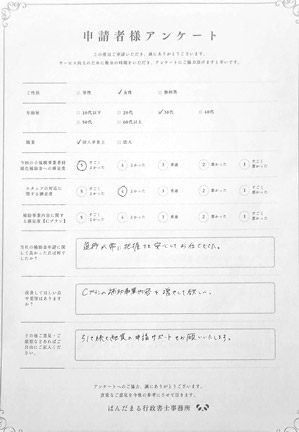 申請者様アンケート
この度はご申請いただき、誠にありがとうございます。
サービス向上のために数分お時間をいただき、アンケートにご協力頂けますと幸いです。
ご性別
男性 ✓女性 無回答
年齢層
10代以下 20代 ✓30代 40代
50代 60代以上
職業
✓個人事業主 法人
5 すごくよかった 4 よかった 3 普通 2 悪かった 1 すごく悪かった
スタッフの対応に関する満足度
5 すごくよかった 4 よかった 3 普通 2 悪かった 1 すごく悪かった
補助事業内容に関する満足度【Cプラン】
5 すごくよかった 4 よかった 3 普通 2 悪かった 1 すごく悪かった
当社の補助金申請に関して良かった点は何でしたか？
進捗が常に把握でき安心してお任せできた。
改善してほしい点や要望はありますか？
Cプランの補助事業内容を増やして欲しい。
その他ご意見・ご感想などあればご自由にご記入ください。
引き続き融資の申請サポートもお願いいたします。
アンケートへのご協力、誠にありがとうございます。
貴重なご意見を今後の参考にさせて頂きます。
ぱんだまる行政書士事務所